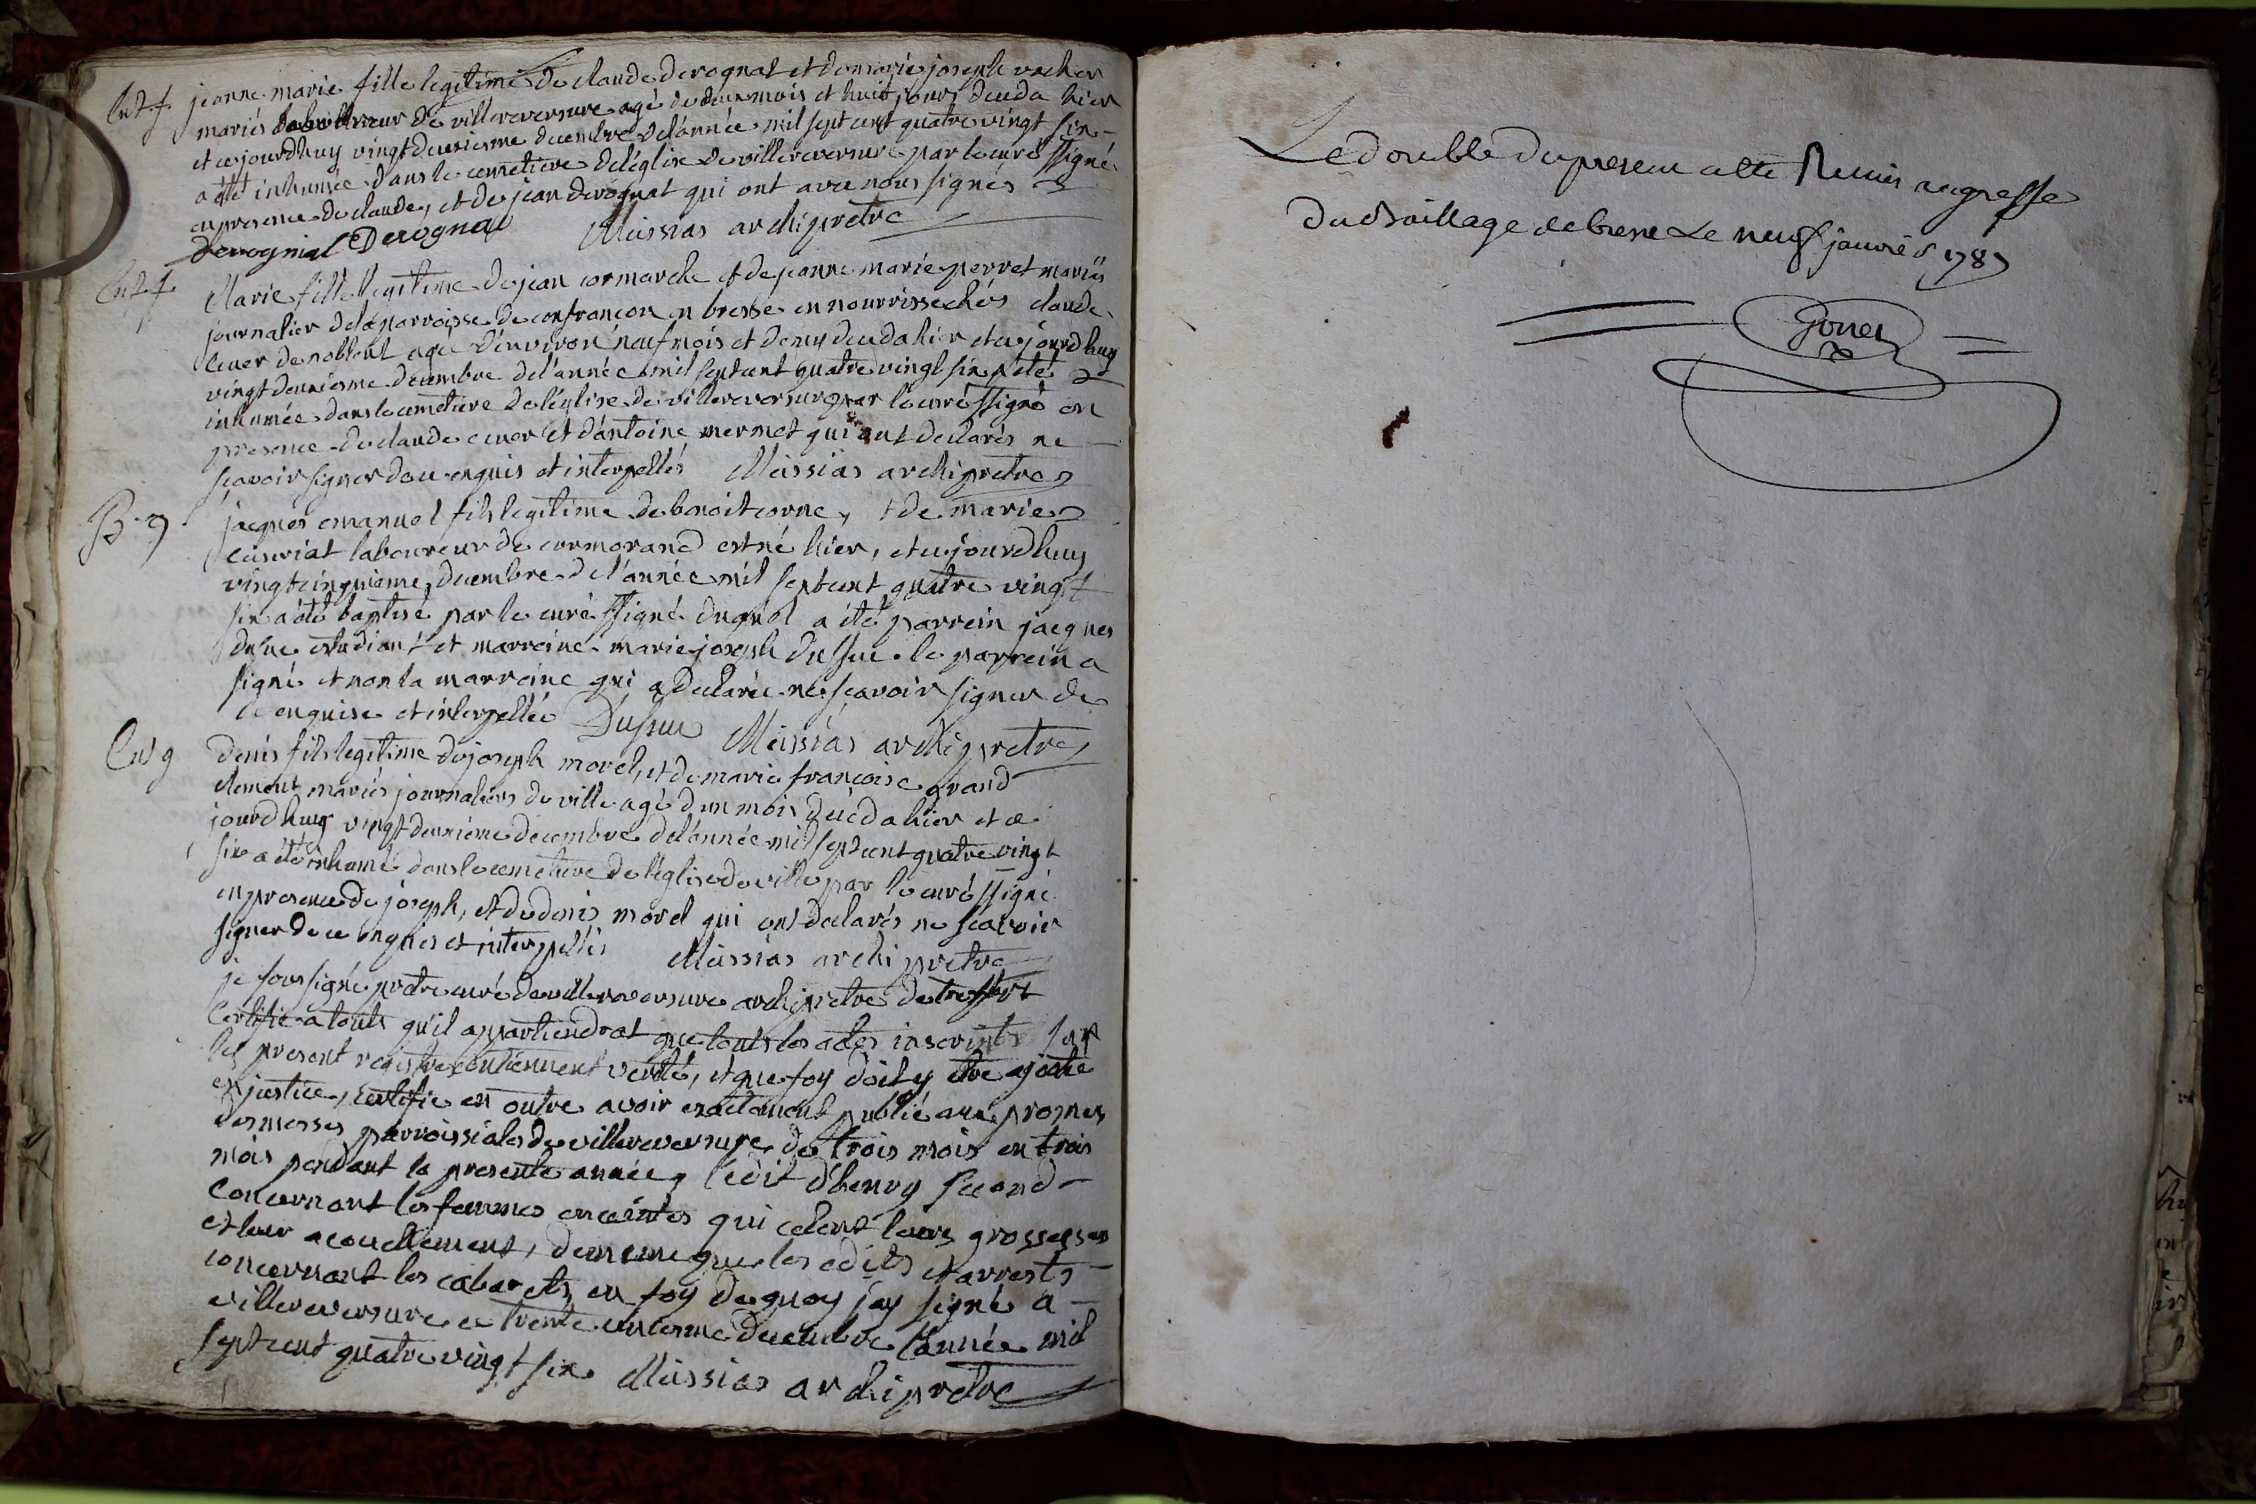 Ent f. jeanne marie fille legitime de claude derognat et de marie joseph vacher
mariés laboureur de villereversure agé de deux mois et huit jours deceda hier
et ce jourdhuy vingt deuxiesme decembre de l'année mil sept cent quatre vingt six
a été inhumée dans le cemetiere de l'église de villereversure par le curé ssigné
en presence de claude, et de jean derognat qui ont avec nous signés
Derognat Derognat Messias archiprêtre
Ent f. Marie fille legitime de jean cormarche et de jeanne marie perret mariés
journalier de la parroisse de confrancon en bresse en nourrisse chés claude
cuer de noblent agée d'environ neuf mois et demy deceda hier et ce jourdhuy
vingt deuxiesme decembre de l'année mil sept cent quatre vingt six a été
inhumée dans le cemetiere de l'église de villereversure par le curé ssigné en
presence de claude cuer et d'antoine mermet qui ont declarés ne
scavoir signer de ce enquis et interpellés Messias archiprêtre
B. g. jacques emanuel fils legitime de benoit corne, et de marie
cusuriat laboureur de cormorand est né hier, et ce jourdhuy
vingt cinquieme decembre de l'année mil sept cent quatre vingt
six a été baptisé par le curé ssigné duquel a été parrein jacques
dusuc etudiant et marreine marie joseph dussuc. le parrein a
signé et non la marreine qui a declarée ne scavoir signer de
ce enquise et interpellée Dusuc Messias archiprêtre
Ent g denis fils legitime de joseph morel, et de marie francoise grand
clement mariés journaliers de ville agé d'un mois deceda hier et ce
jourdhuy vingt deuxieme decembre de l'année mil sept cent quatre vingt
six a été inhumé dans le cemetiere de l'église de ville par le curé ssigné
en presence de joseph, et de denis morel qui ont declarés ne scavoir
signer de ce enquis et interpellés Messias archiprêtre
je soussigné prêtre curé de villereversure archiprêtre de treffort
certifie a touts qu'il appartiendrat que touts les actes inscrints sur
les present registre contiennent verité, et que foy doit y être ajoutée
en justice, certifie en outre avoir exactement publié aux prosnes
des messes parroissiales de villereversure de trois mois en trois
mois pendant la presente année, l'edit d'henry second
concernant les femmes enceintes qui celent leurs grossesses
et leur accouchement, de meme que les edits et arrests
concernant les cabarets, en foy de quoy j'ay signé a
villereversure ce trente unieme decembre l'année mil
sept cent quatre vingt six Messias archiprêtre
Le double du present a eté Remis au greffe
du Bailliage de bresse Le neuf janvier 1787